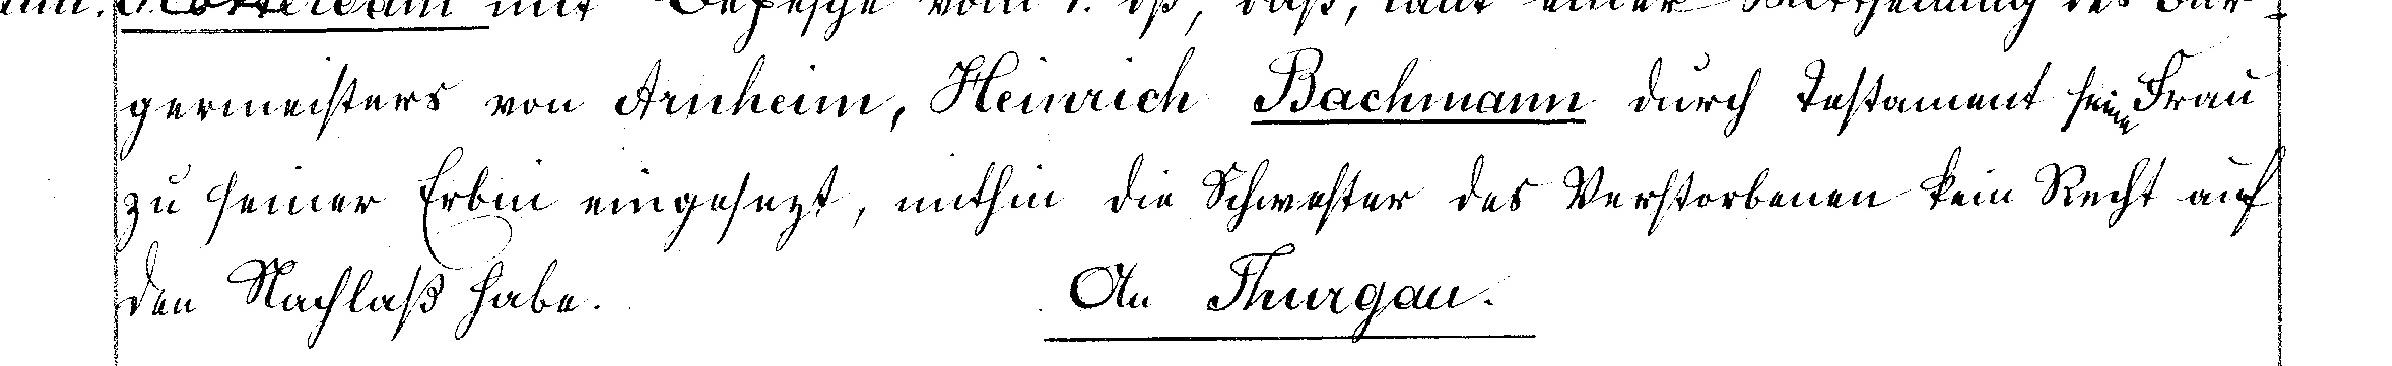 Rotterdam mit Depesche vom 1. dß, daß, laut einer Mittheilung des Bür-
germeisters von Arnheim, Heinrich Bachmann durch Testament seine Frau
zu seiner Erbin eingesezt, mithin die Schwester des Verstorbenen kein Recht auf
den Nachlaß habe.
An Thurgau.